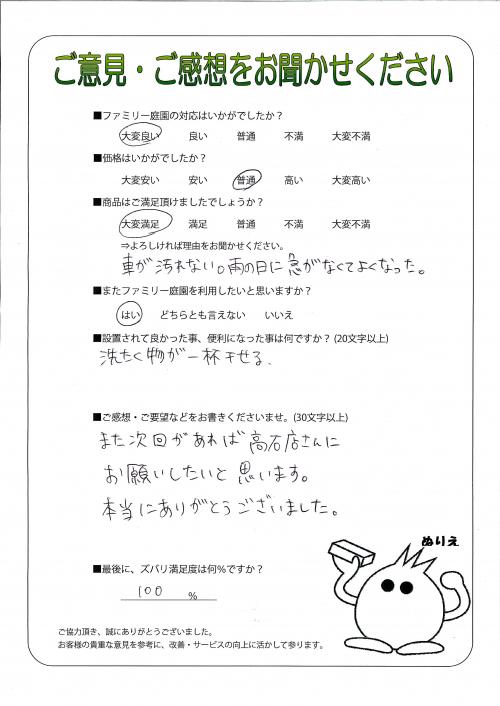 ご意見・ご感想をお聞かせください
■ファミリー庭園の対応はいかがでしたか？
大変良い 良い 普通 不満 大変不満
■価格はいかがでしたか？
大変安い 安い 普通 高い 大変高い
■商品はご満足頂けましたでしょうか？
大変満足 満足 普通 不満 大変不満
⇒よろしければ理由をお聞かせください。
車が汚れない。雨の日に急がなくてよくなった。
■またファミリー庭園を利用したいと思いますか？
はい どちらとも言えない いいえ
■設置されて良かった事、便利になった事は何ですか？ (20文字以上)
洗たく物が一杯干せる、
■ご感想・ご要望などをお書きくださいませ。(30文字以上)
また次回があれば高石店さんに
お願いしたいと思います。
本当にありがとうございました。
ぬりえ
■最後に、ズバリ満足度は何%ですか？
100 %
ご協力頂き、誠にありがとうございました。
お客様の貴重な意見を参考に、改善・サービスの向上に活かして参ります。